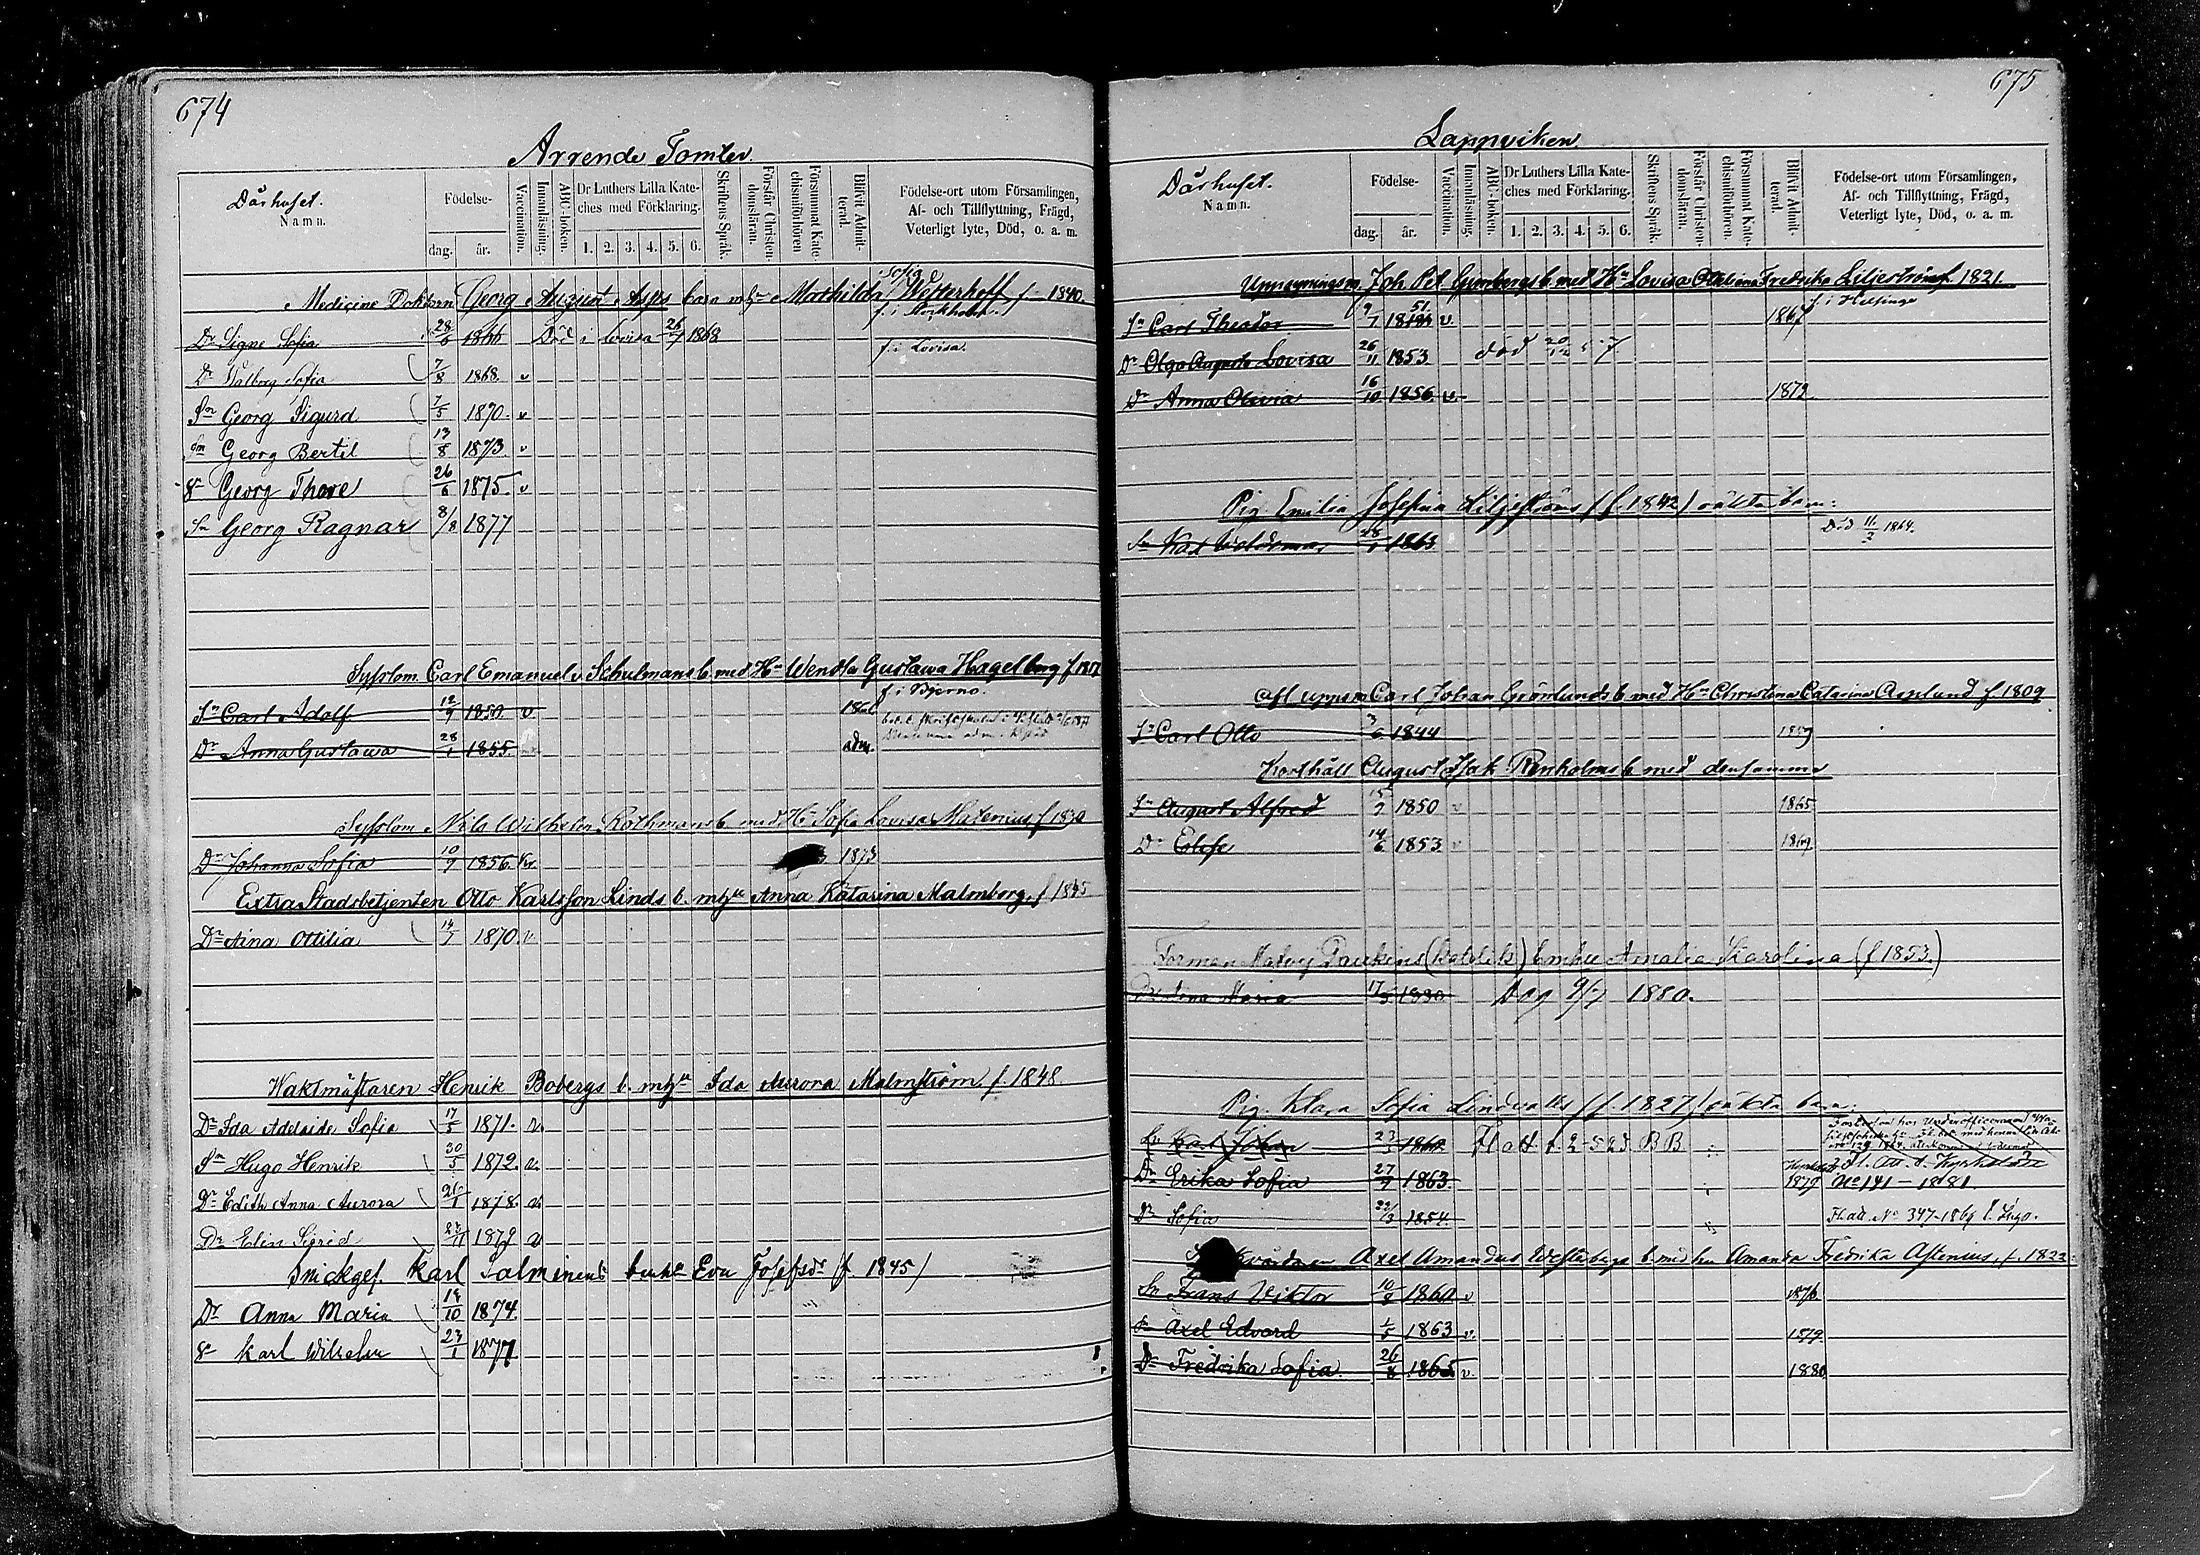 674
Arrende Tomter
Dårhuset.
Namn.
Födelse-
dag.
år.
Vaccination.
Innanläsning.
ABC-boken.
Dr Luthers Lilla Kate-
ches med Förklaring.
1. 2. 3. 4. 5. 6.
Skriftens Språk.
Förstår Christen-
domsläran.
Försummat Kate-
chismiförhören
Blifvit Admit-
terad.
Födelse-ort utom Församlingen,
Af- och Tillflyttning, Frägd,
Veterligt lyte, Död, o. a. m.
Medicine Doktorn Georg August Asps barn m. Mathilda Sofia Wetterhoff f. 1840.
Dr Signe Sofia 28/6 1866 Död i Lovisa 26/7 1868
f. i Lovisa.
Dr Walborg Sofia 7/8 1868. v
Sn Georg Sigurd 7/5 1870. v
Sn Georg Bertil 13/8 1873. v
Sn Georg Thore 26/6 1875. v
Sn Georg Ragnar 8/8 1877
Sysslom. Carl Emanuel v. Schulmans b. med Hu Wendla Gustawa Hagelberg f
f. i Bjerno.
Sn Carl Adolf 12/9 1850. v
Dr Anna Gustawa 28/1 1855. adm.
Sysslom. Nils Wilhelm Rothmans b. med Hu Sofia Lovisa Matenius f 1830
Dr Johanna Sofia 10/9 1856. 1873
Extra Stadsbetjenten Otto Karlsson Linds b. m hu Anna Katarina Malmborg. f 1845
Dr Aina Ottilia 14/7 1870. v
Waktmästaren Henrik Bobergs b. m hu Ida Aurora Malmström. f. 1848
Dr Ida Adelaide Sofia 17/5 1871. v.
Sn Hugo Henrik 30/5 1872. v.
Dr Edith Anna Aurora 26/1 1878. v.
Dr Elin Sigrid 1879 v
Snickges. Karl Salminens b m hu Eva Josefsdr (f. 1845)
Dr Anna Maria 14/10 1874.
Sn Karl Wilhelm 23/1 1877
675
Lappviken
Dårhuset.
Namn.
Födelse-
dag.
år.
Vaccination.
Innanläsning.
ABC-boken.
Dr Luthers Lilla Kate-
ches med Förklaring.
1. 2. 3. 4. 5. 6.
Skriftens Språk.
Förstår Christen-
domsläran.
Försummat Kate-
chismiförhören.
Blifvit Admit-
terad.
Födelse-ort utom Församlingen,
Af- och Tillflyttning, Frägd,
Veterligt lyte, Död, o. a. m.
Uppsyningsm. Joh Pet Grönbergs b. med Hu Lovisa Fredrika Liljeström f. 1821.
f. i Helsinge
Sn Carl Theodor 9/7 v. 1867
Dr Olga Augusta Lovisa 26/11 1853. död
Dr Anna Olivia 16/10 1856. v. 1872
Pig. Emilia Josefina Liljeströms (f. 1842) oäkta barn:
Sn Karl Woldemar 28/1 1863 Död 11/3 1864.
Afl uppsm Carl Johan Grönlunds b. med Hu Christina Catarina Asplund f 1809
Sn Carl Otto 3/6 1844 1859
Korthåll August Isak Renholms b. med densamma
Sn August Alfred 15/7 1850 v 1865
Dr Elise 14/6 1853 v 1869
Forman Matvej b m hu Amalia Karolina (f 1853.)
Maria 1880 Dog 9/7 1880.
Pig. Klara Sofia Lindvalls (f. 1827) oäkta barn:
Sn Karl Johan 23/3 1860
Dr Erika Sofia 27/7 1863. 1879 No 141 - 1881.
Dr Sofia 22/3 1854. Fl. att. No 347-1869
Axel Amandus Westerbergs b. med hu Amanda Fredrika Astenius, f. 1822:
Sn Frans Viktor 10/8 1860 v 1876
Sn Axel Edvard 1/5 1863 v. 1879.
Dr Fredrika Sofia. 26/8 1865 v. 1880